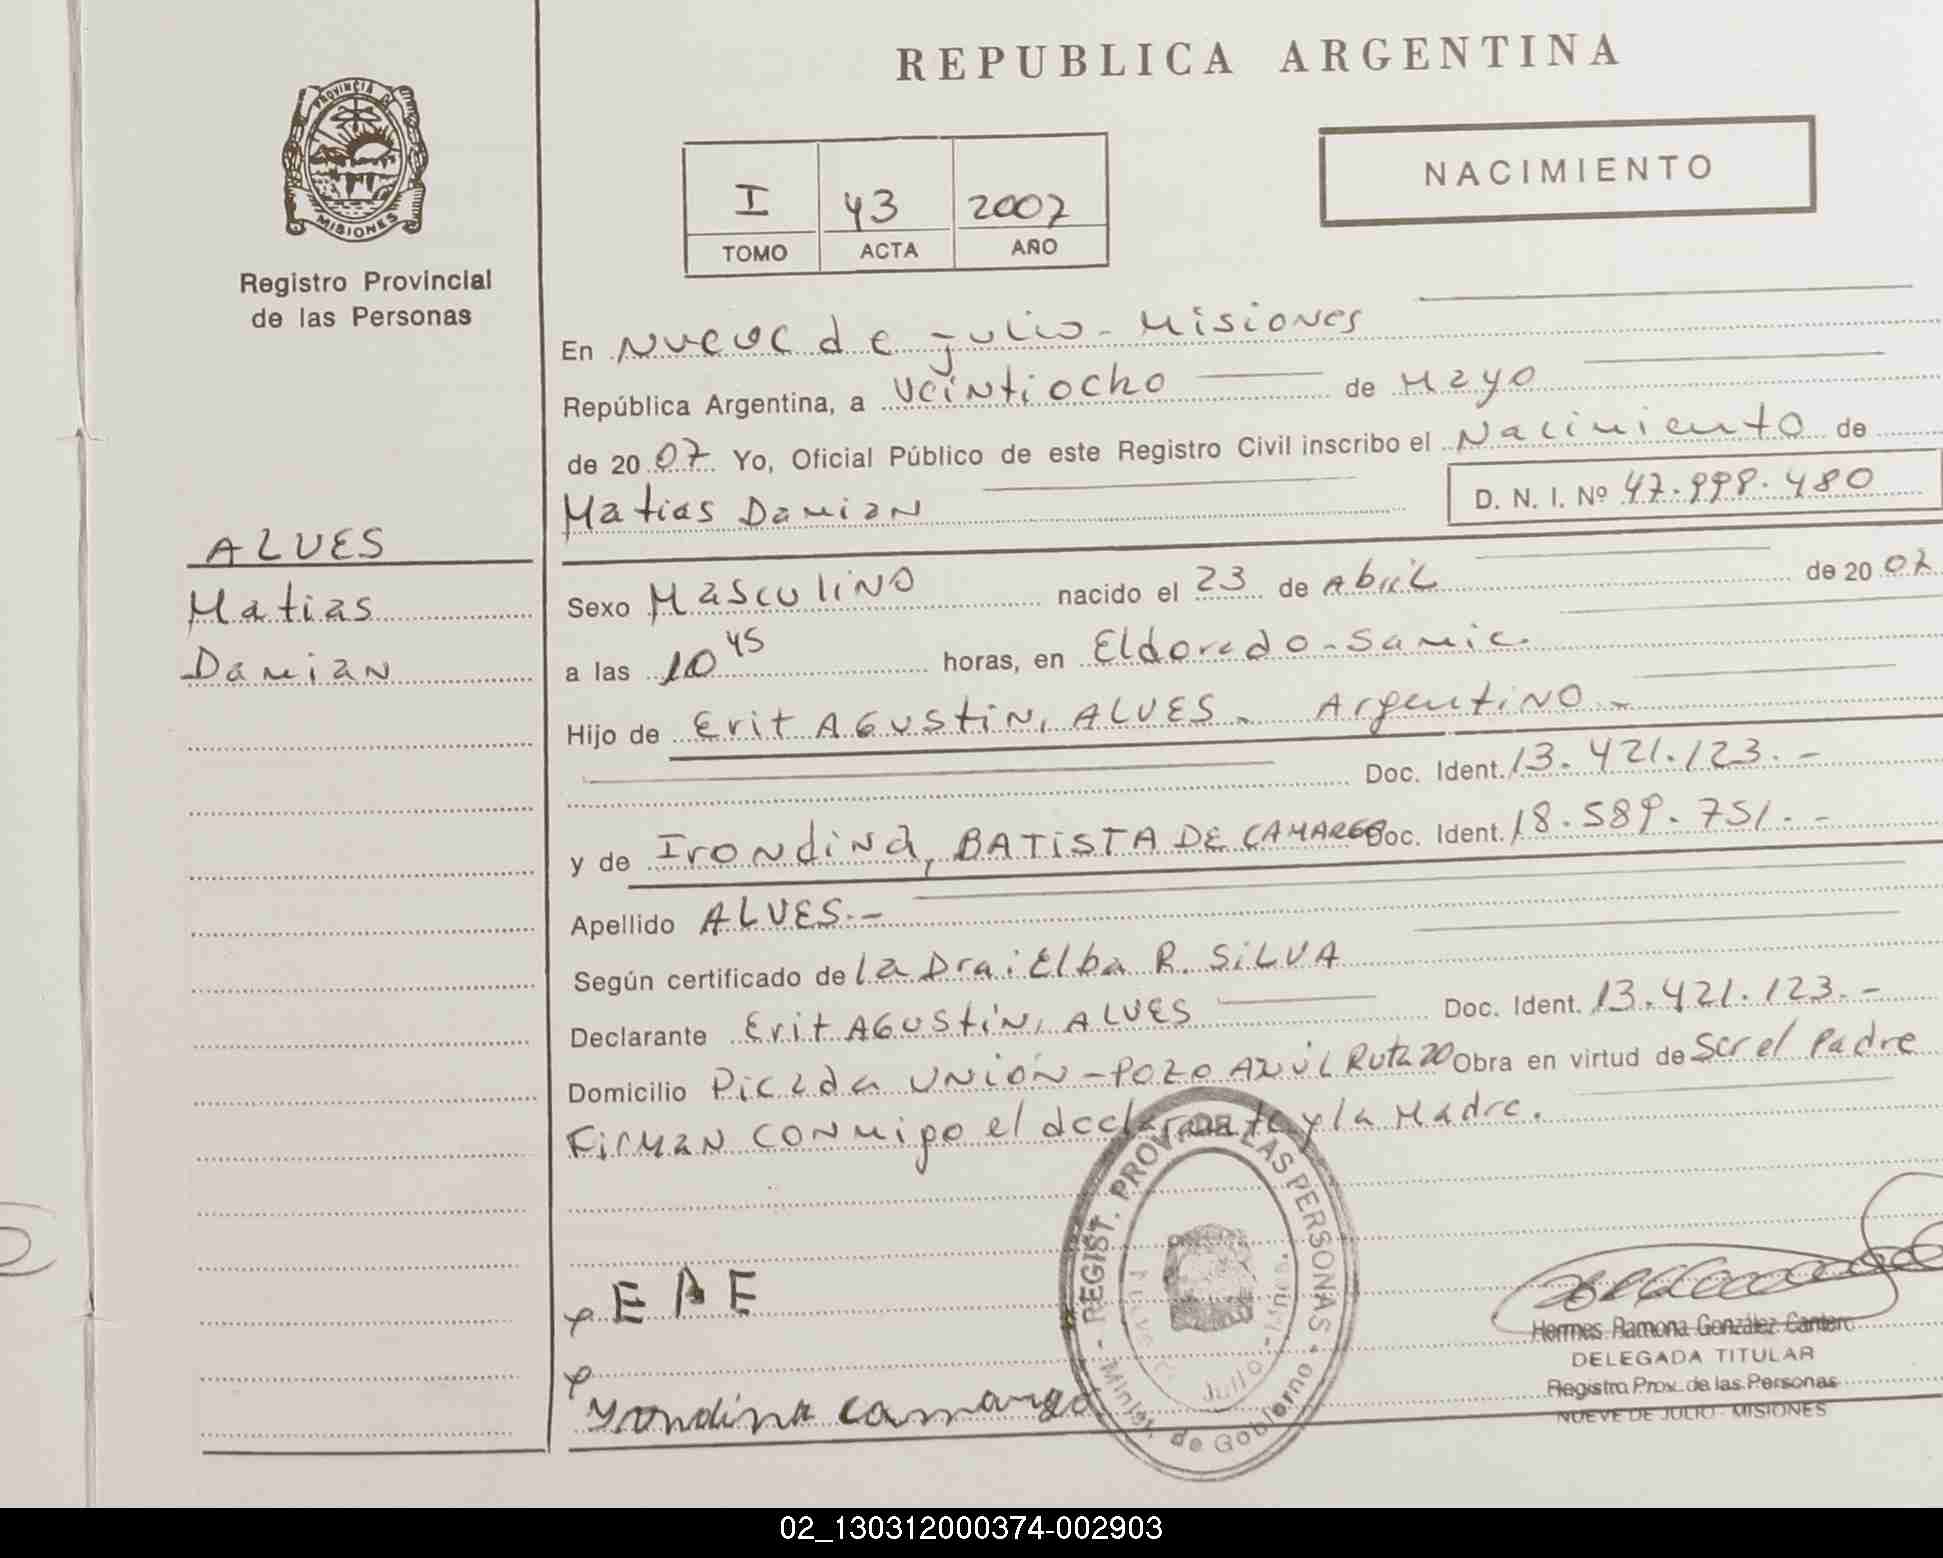 REPUBLICA ARGENTINA
PROVINCIA DE
MISIONES
Registro Provincial
de las Personas
NACIMIENTO
I 43 2007
TOMO ACTA AÑO
En Nueve de Julio - Misiones
República Argentina, a Veintiocho de Mayo
de 20 07 Yo, Oficial Público de este Registro Civil inscribo el Nacimiento de
Matias Damian D. N. I. Nº 47.998.480
ALVES
Matias
Damian
Sexo Masculino nacido el 23 de Abril de 20 07
a las 10 45 horas, en Eldorado - Samic.
Hijo de Erit AGUStiN, ALVES - Argentino -
Doc. Ident. 13.421.123.-
y de Irondina, BATiSTA DE CAMARGO Doc. Ident. 18.589.751.-
Apellido ALVES.-
Según certificado de la Dra: Elba R. SiLVA
Declarante Erit AGUStiN, ALVES Doc. Ident. 13.421.123.-
Domicilio Picada UNIÓN - POZO AZUL Ruta 20 Obra en virtud de Ser el Padre
Firman conmigo el declarante y la Madre.
E A E
Yrondina Camargo
REGIST. PROV. DE LAS PERSONAS
Minist. de Gobierno
Nueve de Julio - Mnes.
Hermes Ramona González Cantero
DELEGADA TITULAR
Registro Prov. de las Personas
NUEVE DE JULIO - MISIONES
02_130312000374-002903